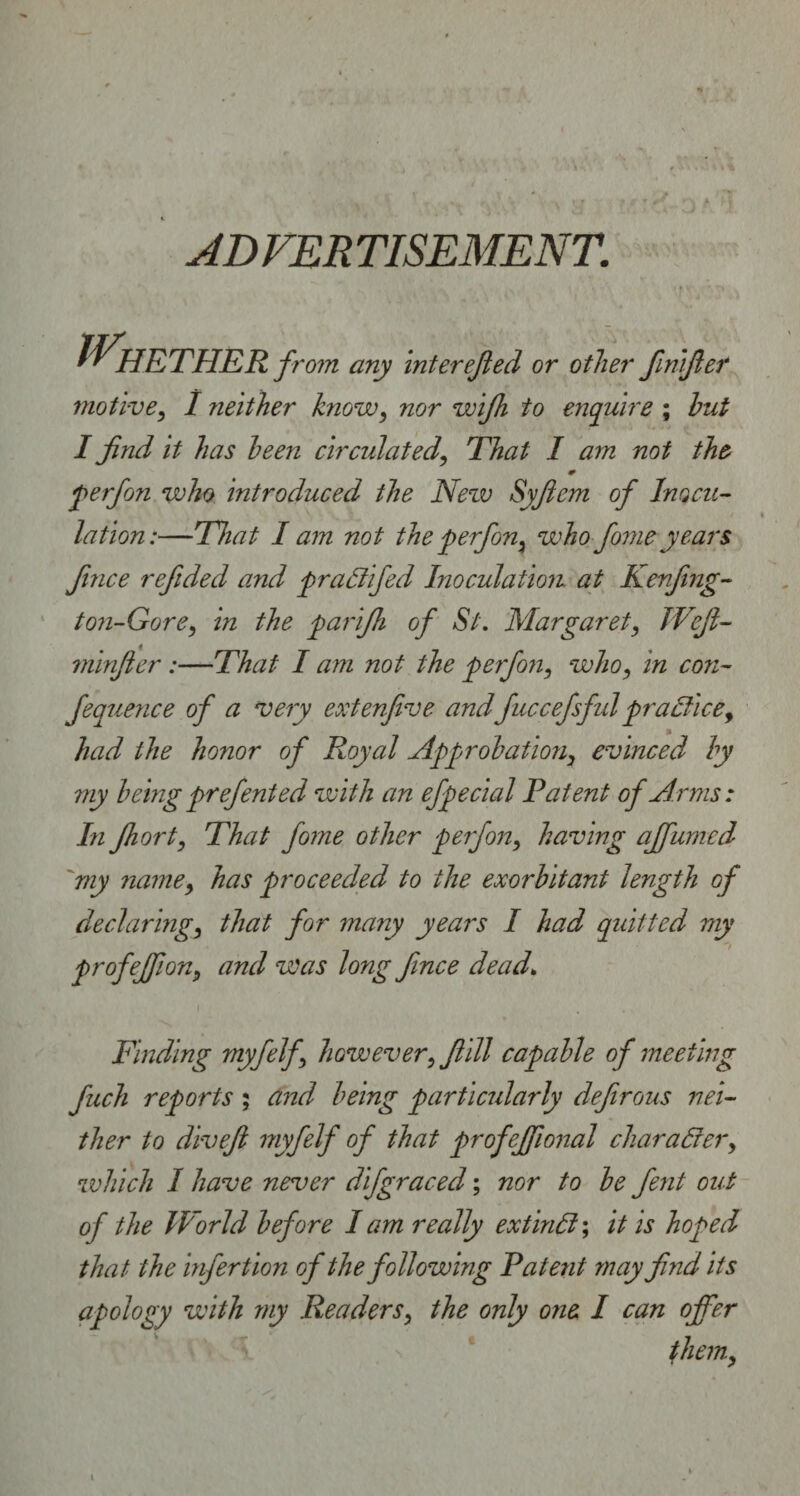 ADVERTISEMENT.
WHETHER from any intereſted or other ſiniſter
motive, I neither know, nor wiſh to enquire ; but
I find it has been circulated, That I am not the
perſon who introduced the New Syſtem of Inocu-
lation:—That I am not the perſon, who ſome years
ſince reſided and practiſed Inoculation at Kenſing-
ton-Gore, in the pariſh of St. Margaret, Weſt-
minſter :—That I am not the perſon, who, in con-
ſequence of a very extenſive and ſucceſsful practice,
had the honor of Royal Approbation, evinced by
my being preſented with an eſpecial Patent of Arms:
In ſhort, That ſome other perſon, having aſſumed
my name, has proceeded to the exorbitant length of
declaring, that for many years I had quitted my
profeſſion, and was long ſince dead.
Finding myſelf, however, ſtill capable of meeting
ſuch reports ; and being particularly deſirous nei-
ther to diveſt myſelf of that profeſſional character,
which I have never diſgraced ; nor to be ſent out
of the World before I am really extinct ; it is hoped
that the inſertion of the following Patent may find its
apology with my Readers, the only one I can offer
them,